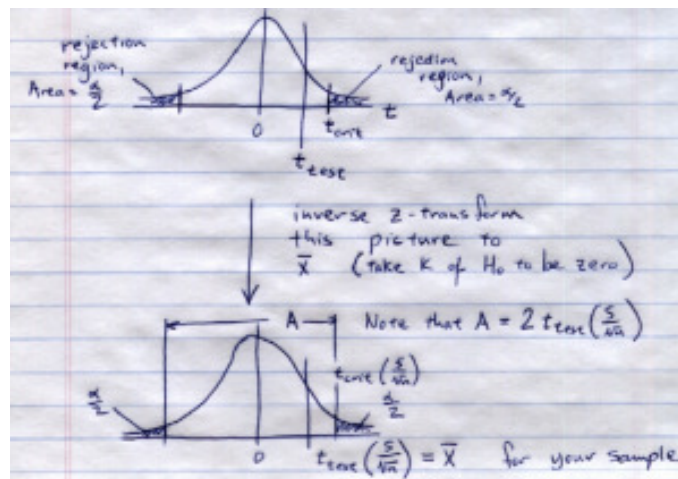 rejection
region,
Area = α/2
rejection
region,
Area = α/2
0
t_crit
t
t_test
inverse z-transform
this picture to
x̄ (take K of H₀ to be zero)
A
Note that A = 2 t_test (s/√n)
t_crit (s/√n)
α/2
α/2
0
t_test (s/√n) = x̄ for your sample